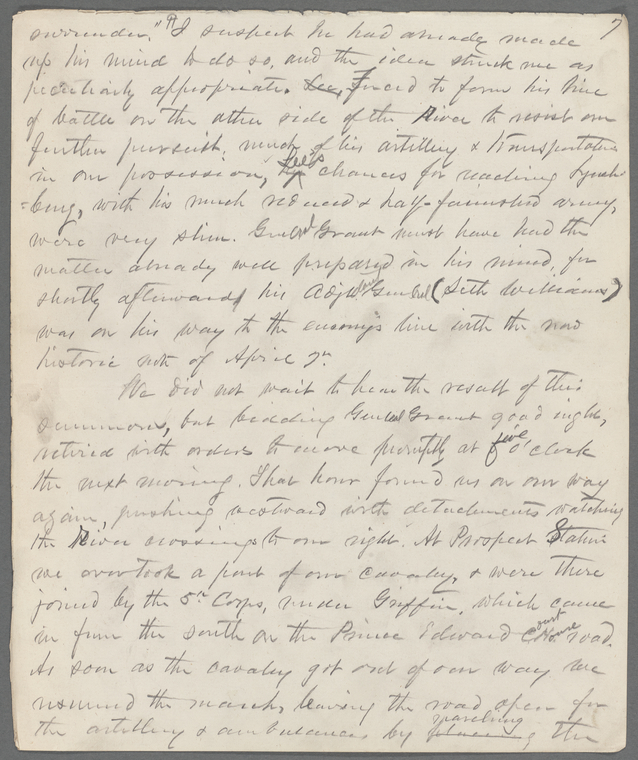 7
surrender." ¶ I suspect he had already made
up his mind to do so, and the idea struck me as
peculiarly appropriate. Lee, Forced to form his line
of battle on the other side of the River to resist our
further pursuit, much of his artillery & transportation
in our possession, Lee's chances for reaching Lynch-
=burg, with his much reduced & half-famished army,
were very slim. Genl Grant must have had the
matter already well prepared in his mind, for
shortly afterward his Adjutant General (Seth Williams)
was on his way to the enemy's line with the now
historic note of April 7th.
We did not wait to hear the result of this
summons, but bidding General Grant good night,
retired with orders to move promptly at five o'clock
the next morning. That hour found us on our way
again, pushing westward with detachments watching
the River crossings to our right. At Prospect Station
we overtook a part of our cavalry, & were there
joined by the 5th Corps, under Griffin, which came
in from the south on the Prince Edward Court House road.
As soon as the cavalry got out of our way we
resumed the march, leaving the road open for
the artillery & ambulances by marching the